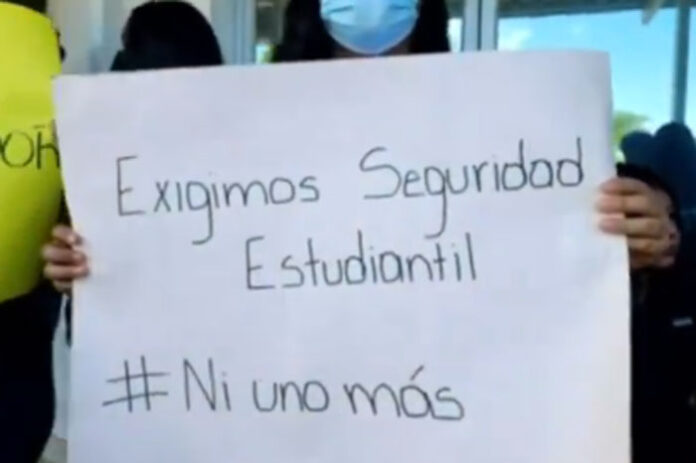 Exigimos Seguridad
Estudiantil
#Ni uno más